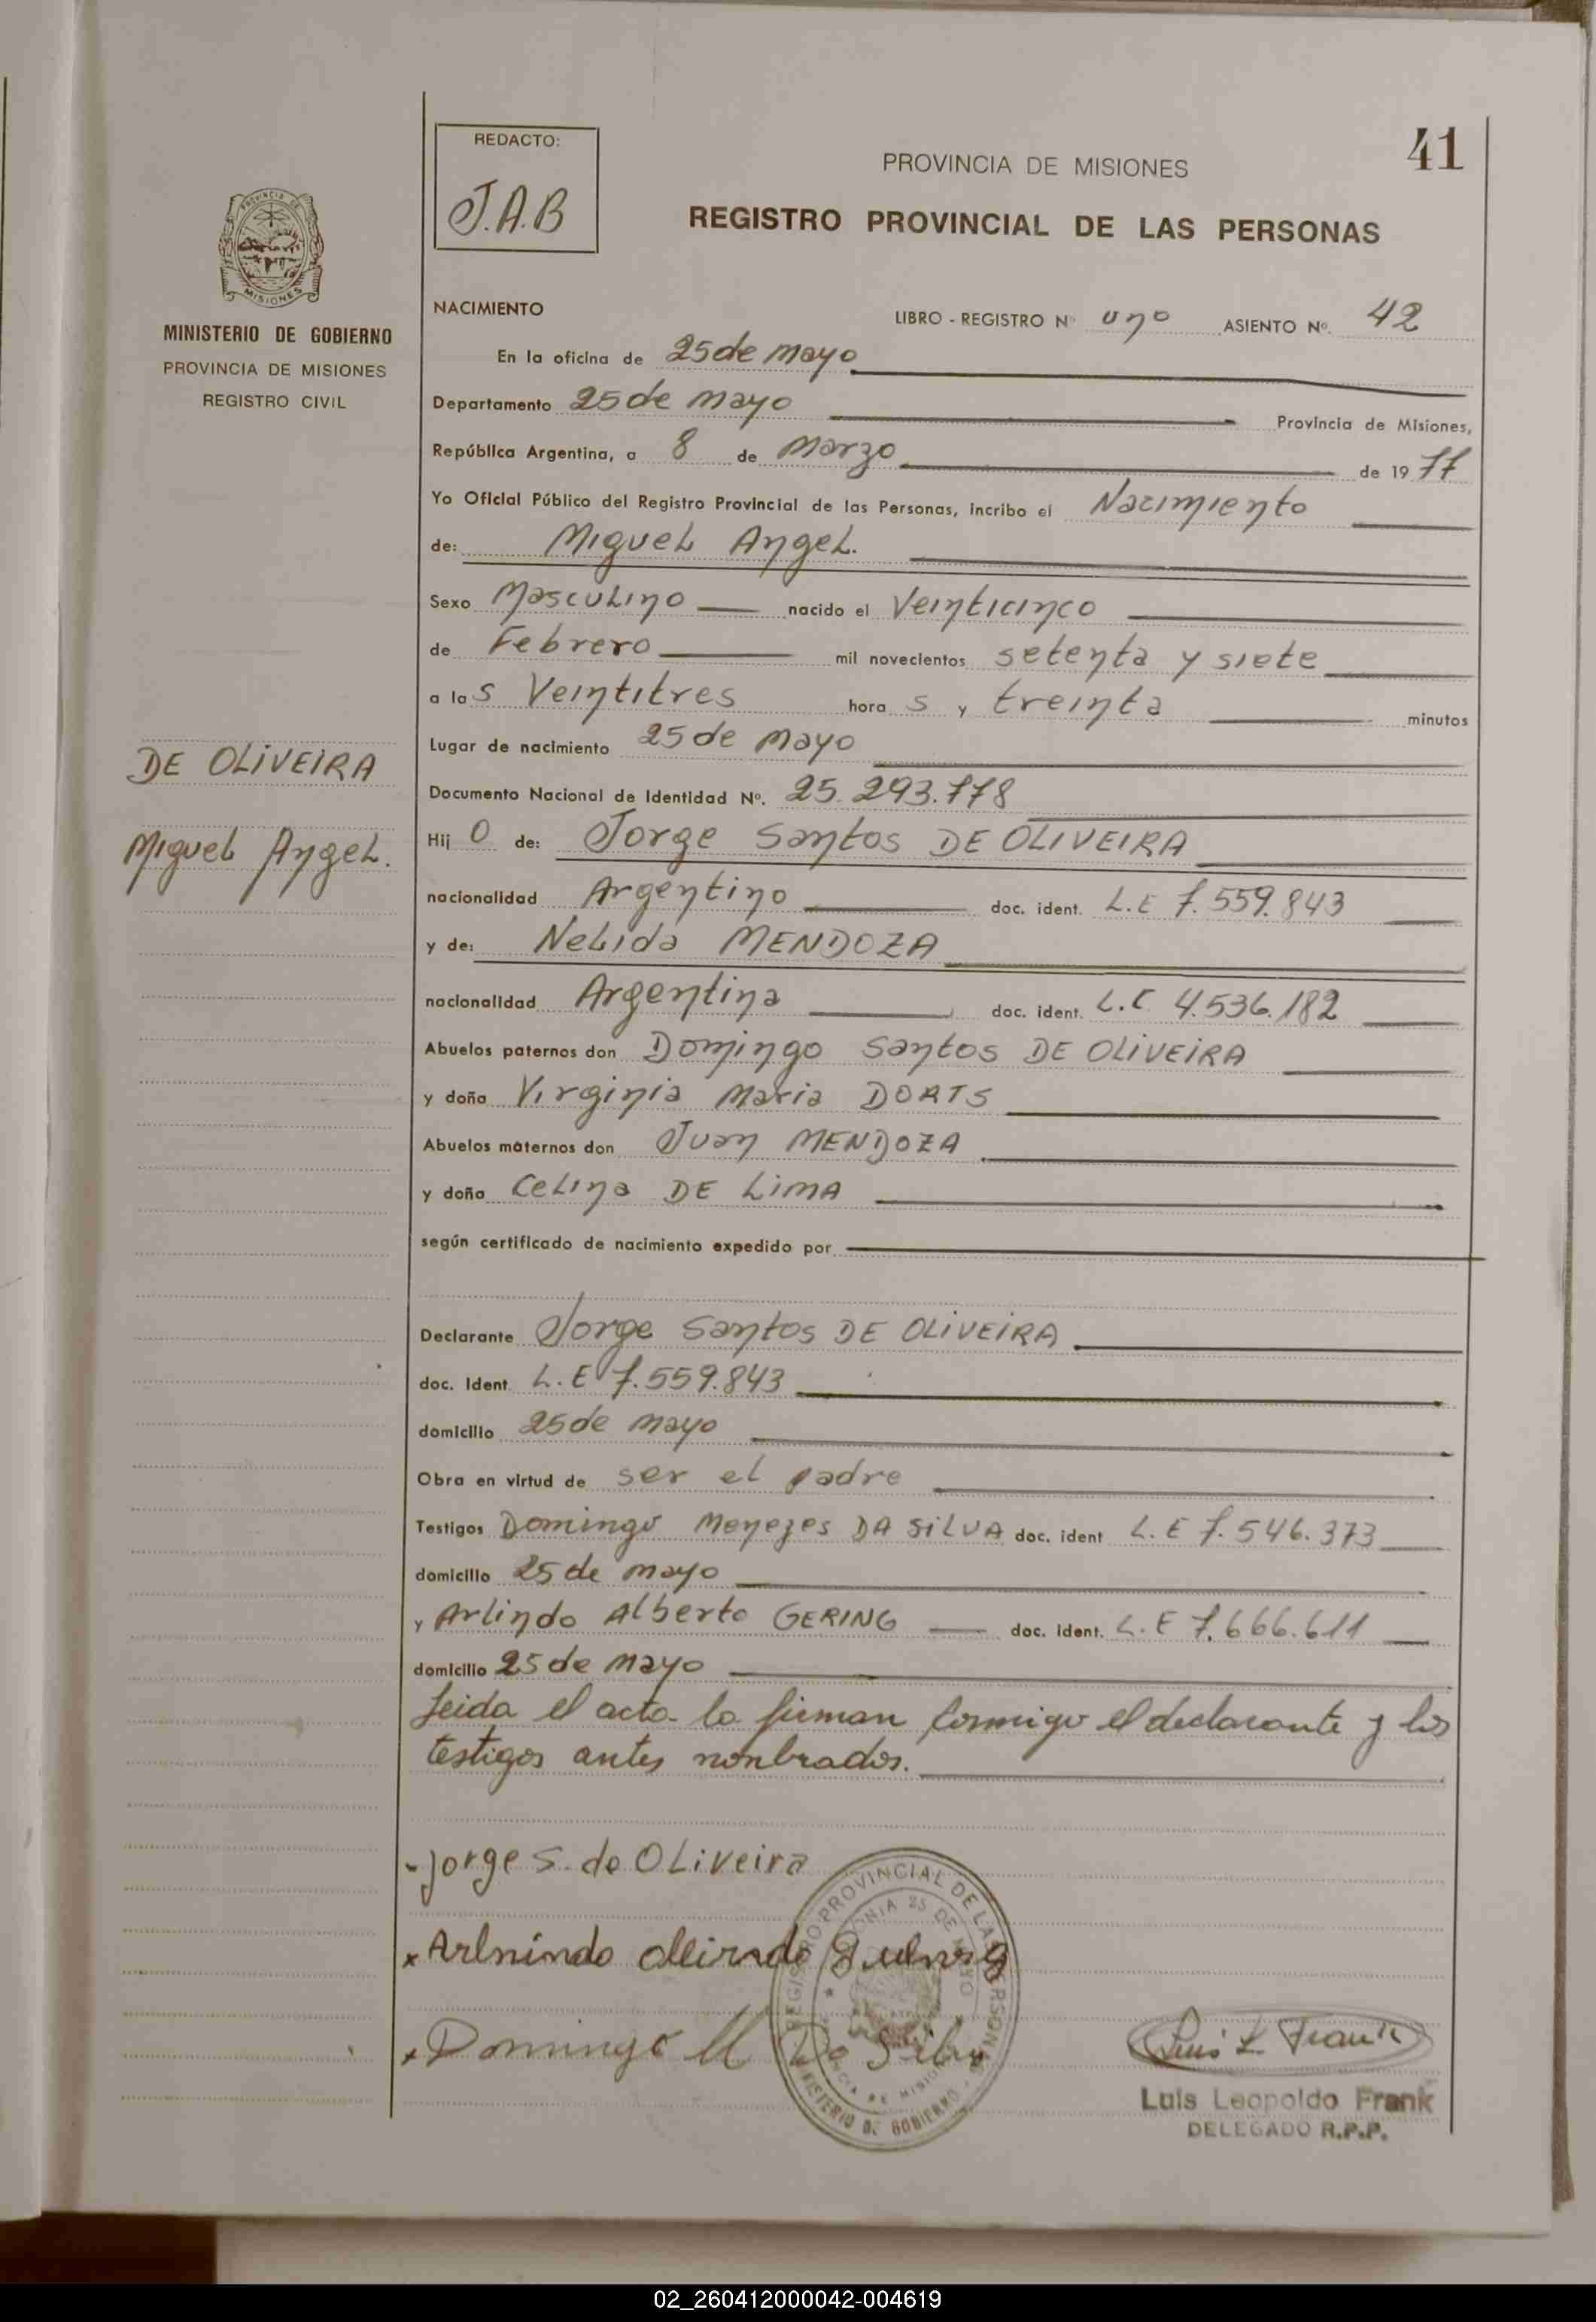 41
REDACTO:
J.A.B
PROVINCIA DE MISIONES
REGISTRO PROVINCIAL DE LAS PERSONAS
MISIONES
MINISTERIO DE GOBIERNO
PROVINCIA DE MISIONES
REGISTRO CIVIL
NACIMIENTO
LIBRO - REGISTRO Nº uno ASIENTO Nº. 42
En la oficina de 25 de mayo
Departamento 25 de mayo Provincia de Misiones,
República Argentina, a 8 de marzo de 1977
Yo Oficial Público del Registro Provincial de las Personas, incribo el Nacimiento
de: Miguel Angel.
Sexo Masculino nacido el Veinticinco
de Febrero mil novecientos setenta y siete
a las Veintitres horas y treinta minutos
Lugar de nacimiento 25 de mayo
DE OLIVEIRA
Miguel Angel.
Documento Nacional de Identidad Nº. 25.293.778
Hijo de: Jorge Santos DE OLIVEIRA
nacionalidad Argentino doc. ident. L.E 7.559.843
y de: Nelida MENDOZA
nacionalidad Argentina doc. ident. L.C 4.536.182
Abuelos paternos don Domingo Santos DE OLIVEIRA
y doña Virginia Maria DORTS
Abuelos maternos don Juan MENDOZA
y doña Celina DE LIMA
según certificado de nacimiento expedido por
Declarante Jorge Santos DE OLIVEIRA
doc. Ident. L.E 7.559.843
domicilio 25 de mayo
Obra en virtud de ser el padre
Testigos Domingo Menezes DA SILVA doc. ident L.E 7.546.373
domicilio 25 de mayo
y Arlindo Alberto GERING doc. ident. L.E 7.666.611
domicilio 25 de mayo
Leida el acta la firman conmigo el declarante y los
testigos antes nonbrados.
Jorge S. de OLiveira
Domingo M Da Silva
REGISTRO PROVINCIAL DE LAS PERSONAS
COLONIA 25 DE MAYO
PROVINCIA DE MISIONES
MINISTERIO DE GOBIERNO
Luis L. Frank
Luis Leopoldo Frank
DELEGADO R.P.P.
02_260412000042-004619